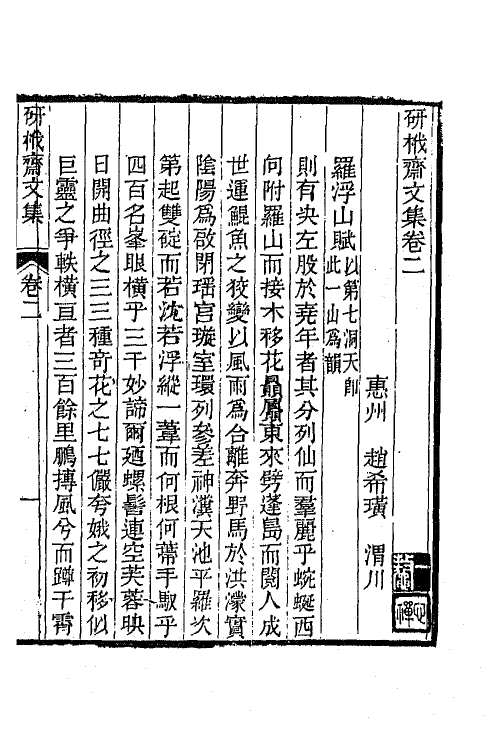 研栰齋文集卷二
惠州 趙希璜 渭川
羅浮山賦以第七洞天卽此一山爲韻
則有央左股於堯年者其分列仙而羣麗乎蜿蜒西
向附羅山而接木移花贔屭東來劈蓬島而閱人成
世運鯤魚之狡變以風雨爲合離奔野馬於洪濛實
陰陽爲啟閉瑶宫璇室環列參差神瀵天池平羅次
第起雙碇而若沈若浮縱一葦而何根何蔕手馭乎
四百名峯眼橫乎三千妙諦爾廼螺髻連空芙蓉映
日開曲徑之三三種奇花之七七儼夸娥之初移似
巨靈之爭軼橫亘者三百餘里鵬摶風兮而蹲千霄
研栰齋文集 卷二 一